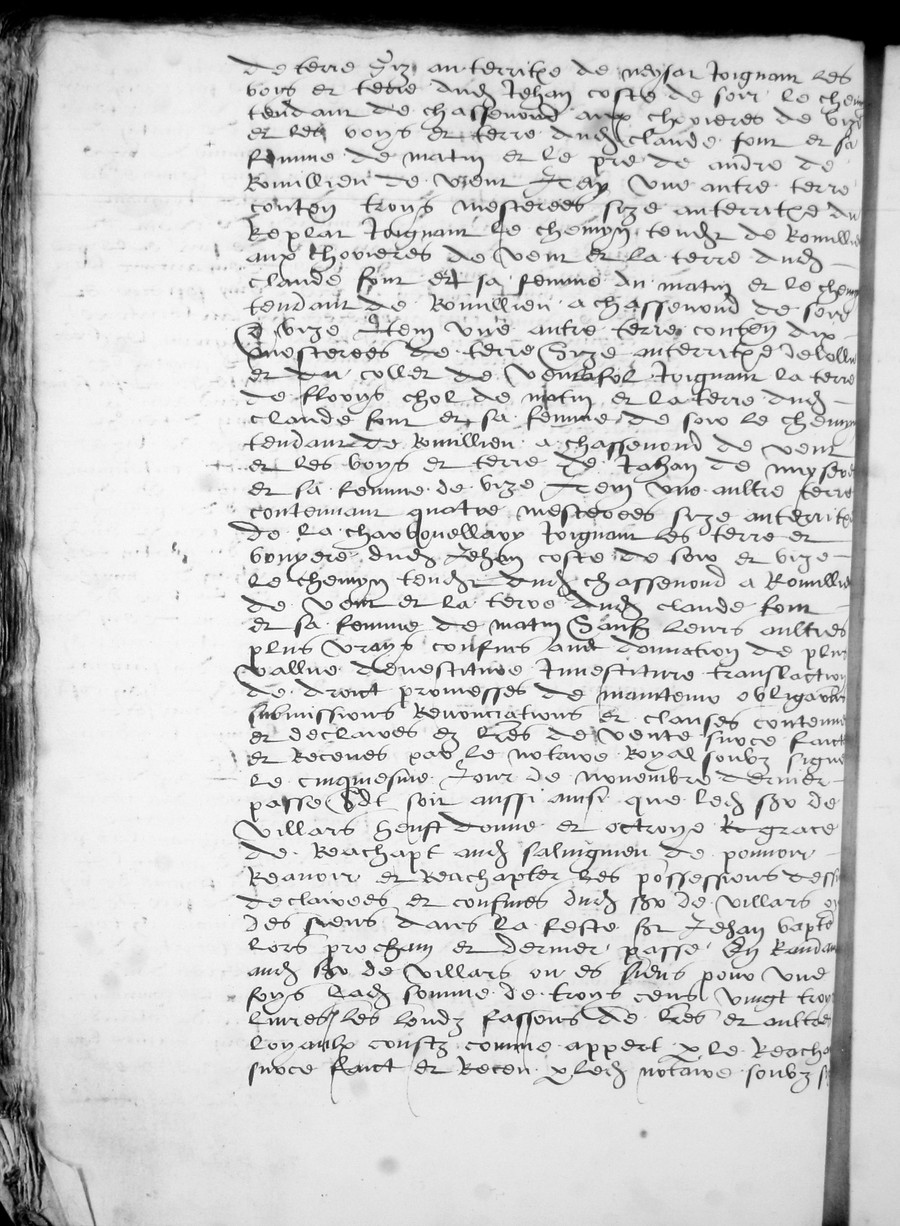 de terre size au territoe de neysat Joignant les
boys et terre dud Jehan coste de soir le chem
tendant de chassenoud aux chovieres de vize
et les boys et terre dud claude font et sa
femme de matin et le pre de andre de
Romillieu de vent Item une autre terre
conten troys mesterees size au territoe du
Replat Joignant le chemyn tendt de Romillie
aux chovieres de vent et la terre dud
claude font et sa femme du matin et le chem
tendant de Romillieu a chassenoud de soir
et vize Item une autre terre conten dix
mesterees de terre size au territoe
et du collet de ventafol Joignant la terre
de flouys chol de matin et la terre dud
claude font et sa femme de soir le chemyn
tendant de Romillieu a chassenoud de vent
et les boys et terre de Jahan de
et sa femme de vize Item une aultre terre
contennant quatre mesterees size au territo
de la charbonellary Joignant les terre et
vouyere dud Jehan coste de soir et vize
le chemyn tendt dud chassenoud a Romillie
de vent et la terre dud claude font
et sa femme de matin Saufz leurs aultres
plus vrays confins avec donnation de plus
vallue devestiture Investiture translaction
de droict promesses de maintenir obligations
submissions Renonciations et clauses contenue
et declairees ez lres de vente surce faict
et Receues par le notaire Royal soubz signe
le cinquiesme Jour de novembre dernier
passe Et soit aussi ainsi que led sgr de
villars heust donne et octroye grace
de Reachapt aud salvignieu de pouvoir
Reavoir et Reachapter les possessions dess
declairees et confines dud sgr de villars ou
des siens dans la feste st Jehan bapte
lors prochain et dernier passe En Randant
aud sgr de villars ou es siens pour une
foys lad somme de troys cens vingt troys
livres les londz fassons de lres et aultres
loyaulx coustz comme appert p le Reacha
surce faict et Receu p led notaire soubz s